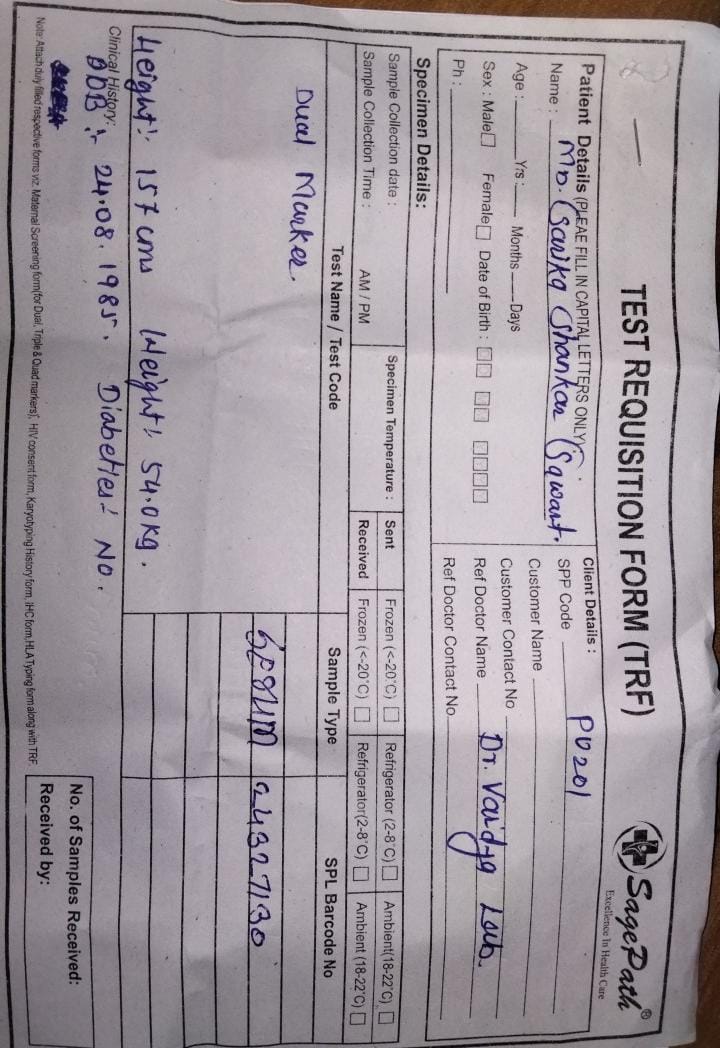 TEST REQUISITION FORM (TRF)
SagePath®
Excellence In Health Care
Patient Details (PLEAE FILL IN CAPITAL LETTERS ONLY):
Name : Mrs. Sarika Shankar Sawant.
Age : Yrs : Months Days
Sex : Male Female Date of Birth :
Ph :
Client Details :
SPP Code PU201
Customer Name
Customer Contact No
Ref Doctor Name Dr. Vaidya Lab.
Ref Doctor Contact No
Specimen Details:
Sample Collection date : Specimen Temperature : Sent Frozen (<-20°C) Refrigerator (2-8°C) Ambient(18-22°C)
Sample Collection Time : AM / PM Received Frozen (<-20°C) Refrigerator(2-8°C) Ambient (18-22°C)
Test Name / Test Code Sample Type SPL Barcode No
Dual Marker.
SERUM 24327130
Height:- 157 cms Weight:- 54.0 kg.
Clinical History:
DOB :- 24.08.1985. Diabeties:- No.
No. of Samples Received:
Received by:
Note: Attach duly filled respective forms viz. Maternal Screening form(for Dual, Triple & Quad markers), HIV consent form, Karyotyping History form, IHC form, HLA Typing form along with TRF